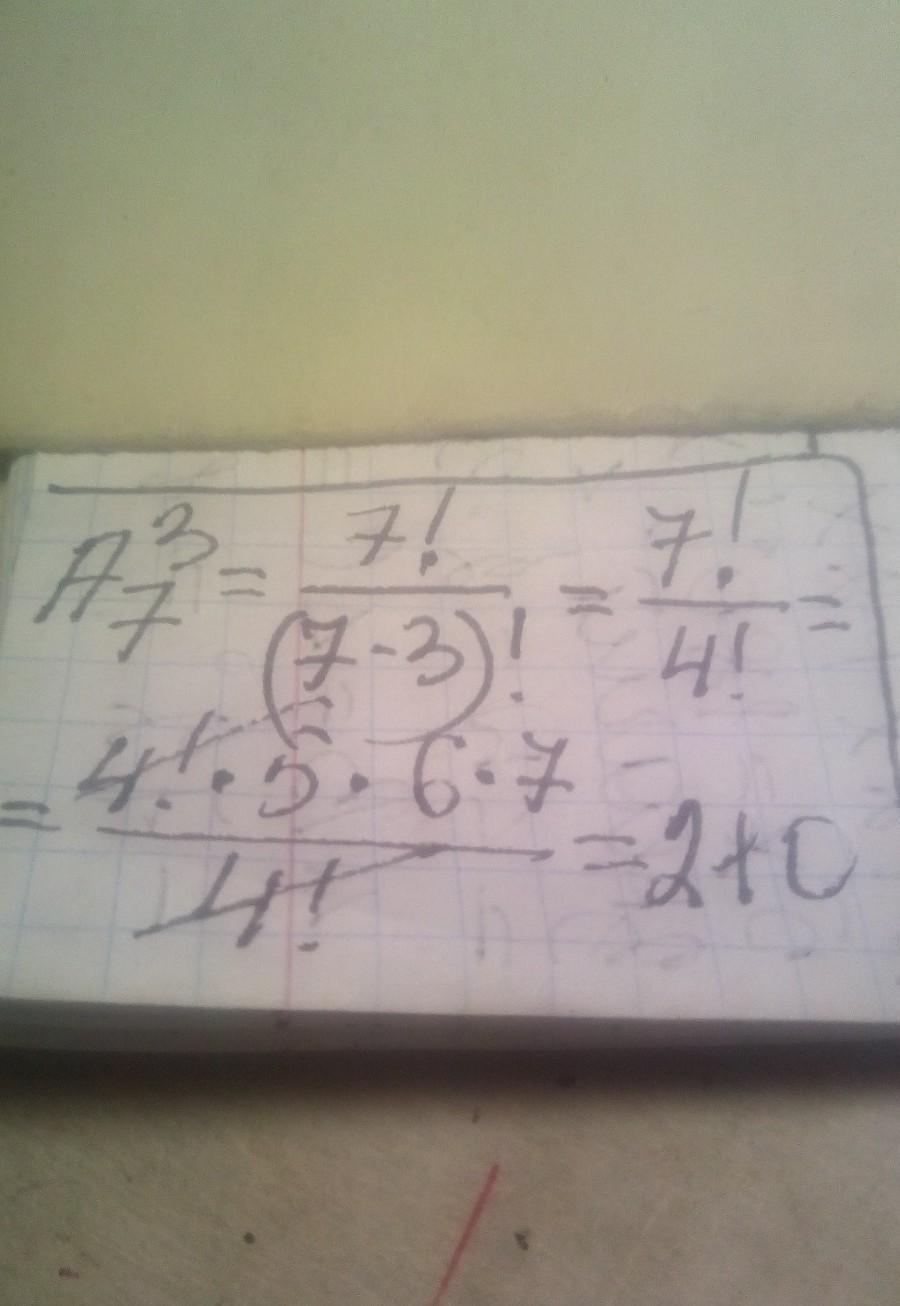 A₇³ = 7! / (7-3)! = 7! / 4! =
= 4! · 5 · 6 · 7 / 4! = 210